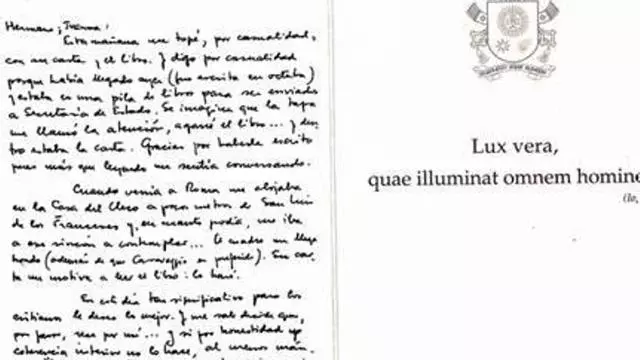 Hermano;
Esta mañana me topé, por casualidad,
con su carta y el libro. Y digo por casualidad
porque había llegado ayer (fue escrita en octubre)
y estaba en una pila de libros para ser enviados
a Secretaría de Estado. Se imagina que la tapa
me llamó la atención, agarré el libro... y den-
tro estaba la carta. Gracias por haberla escrito
pues más que leyendo me sentía conversando.
Cuando venía a Roma me alojaba
en la Casa del Clero a pocos metros de San Luis
de los Franceses y, en cuanto podía, me iba
a ese rincón a contemplar... el cuadro me llega
hondo (además de que Caravaggio es preferido). Su car-
ta me motiva a leer el libro: lo haré.
En este día tan significativo para los
cristianos le deseo lo mejor. Y me
por favor, rece por mí... y si por honestidad y
coherencia interior no lo hace, al menos mán-
Lux vera,
quae illuminat omnem homine
(Io,